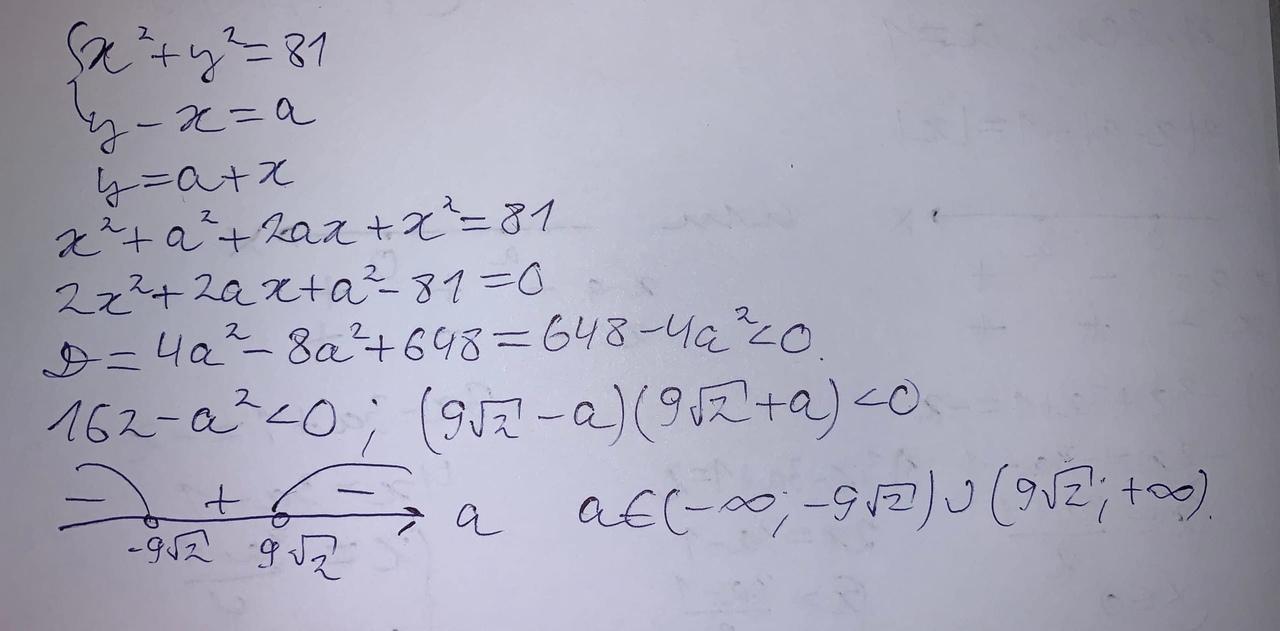 {x² + y² = 81
y - x = a
y = a + x
x² + a² + 2ax + x² = 81
2x² + 2ax + a² - 81 = 0
D = 4a² - 8a² + 648 = 648 - 4a² < 0.
162 - a² < 0 ; (9√2 - a)(9√2 + a) < 0
- + -
-9√2 9√2 a a ∈ (-∞; -9√2) ∪ (9√2; +∞).